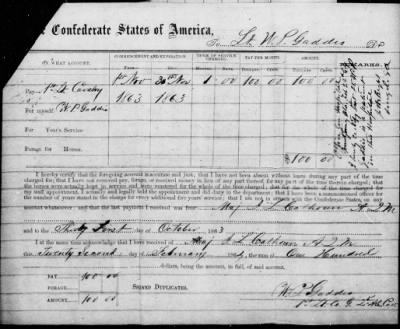 Confederate States of America,
To Lt. W. P. Gaddis Dr.
ON WHAT ACCOUNT.
COMMENCEMENT AND EXPIRATION.
TERM OF SERVICE CHARGED.
PAY PER MONTH.
AMOUNT.
REMARKS.
From— To— Months. Days. Dollars. Cents. Dollars. Cents.
Pay— 1st Lt Cavalry 1st Nov 30th Nov 1 00 100 00 100 00
For myself W. P. Gaddis 1863 1863
For Year's Service
Forage for Horses.
$100 00
I hereby certify that the foregoing account is accurate and just; that I have not been absent without leave during any part of the time
charged for; that I have not received pay, forage, or received money in lieu of any part thereof, for any part of the time therein charged; that
the horses were actually kept in service and were mustered for the whole of the time charged; that for the whole of the time charged for
my staff appointment, I actually and legally held the appointment and did duty in the department; that I
number of years stated in the charge for every additional five years' service; that I am not in arrears with the Confederate States, on any
account whatsoever; and that the last payment I received was from Maj J L Calhoun A Q M
to the Thirty First day of October 1863
I at the same time acknowledge that I have received of Maj J L Calhoun A Q M
this Twenty Second day of February 1864, the sum of One Hundred
dollars, being the amount, in full, of said account.
PAY 100 00
FORAGE
AMOUNT 100 00
SIGNED DUPLICATES.
W. P. Gaddis
1st Lt Co